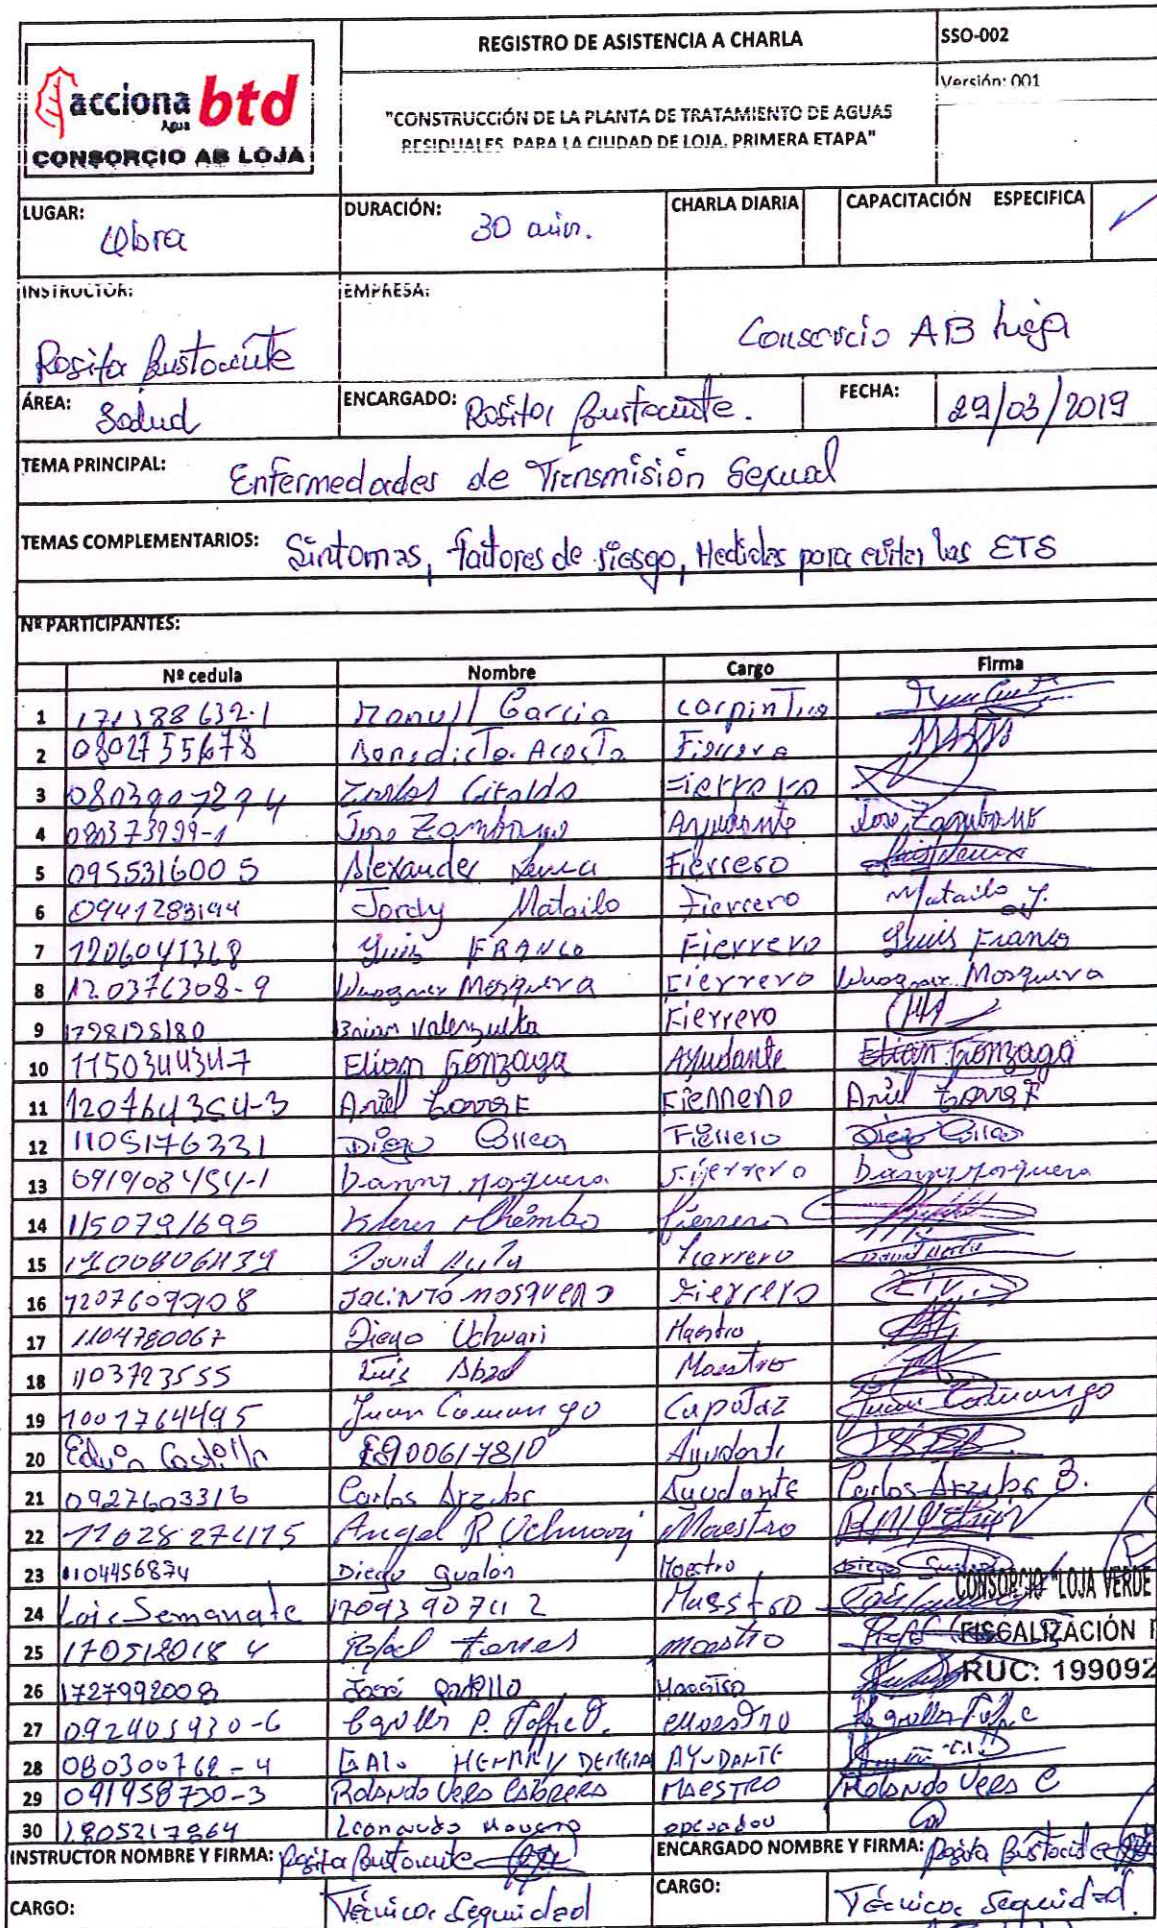 REGISTRO DE ASISTENCIA A CHARLA
SSO-002
Versión: 001
acciona btd
Agua
CONSORCIO AB LOJA
"CONSTRUCCIÓN DE LA PLANTA DE TRATAMIENTO DE AGUAS
RESIDUALES PARA LA CIUDAD DE LOJA. PRIMERA ETAPA"
LUGAR: Obra
DURACIÓN: 30 min.
CHARLA DIARIA
CAPACITACIÓN ESPECIFICA ✓
INSTRUCTOR: Rosita Bustamante
EMPRESA: Consorcio AB Loja
ÁREA: Salud
ENCARGADO: Rosita Bustamante.
FECHA: 29/03/2019
TEMA PRINCIPAL: Enfermedades de Transmisión Sexual
TEMAS COMPLEMENTARIOS: Síntomas, factores de riesgo, Medidas para evitar las ETS
Nº PARTICIPANTES:
Nº cedula Nombre Cargo Firma
1 Manuel Garcia carpintero
2 0802755678 Benedicto Acosta Fierrero
3 Fierrero
4 080373999-1 Jose Zambrano Ayudante Jose Zambrano
5 0955316005 Alexander Fierrero
6 0941283144 Jordy Matailo Fierrero Matailo J.
7 1206041368 Luis FRANCO Fierrero Luis Franco
8 120376308-9 Mosquera Fierrero Mosquera
9 Brian Valenzuela Fierrero
10 1150344347 Elian Gonzaga Ayudante Elian Gonzaga
11 120764354-3 Ariel Fierrero Ariel
12 1105176331 Diego Correa Fierrero Diego Correa
13 091908454-1 Danny Mosquera Fierrero Danny Mosquera
14 1150791695 Fierrero
15 David Fierrero
16 1207609908 Jacinto mosquera Fierrero
17 1104780067 Diego Uchuari Maestro
18 1103723555 Luis Abad Maestro
19 1001764495 Juan Camuango Capataz Juan Camuango
20 Edwin Castillo Ayudante
21 0927603316 Carlos Ayudante Carlos B.
22 Angel R Uchuari Maestro
23 1104456874 Diego Gualán Maestro
24 Luis Semanate Maestro
25 170512018 4 Rafael Torres maestro
26 1727992008 José Maestro
27 092405930-6 P. maestro
28 080300768-4 GALO HENRRY AYUDANTE
29 091958730-3 Rolando Vera Cabrera MAESTRO Rolando Vera C
30 1805217864 Leonardo operador
CONSORCIO "LOJA VERDE
FISCALIZACIÓN
RUC: 199092
INSTRUCTOR NOMBRE Y FIRMA: Rosita Bustamante
ENCARGADO NOMBRE Y FIRMA: Rosita Bustamante
CARGO: Técnico Seguridad
CARGO: Técnico Seguridad.